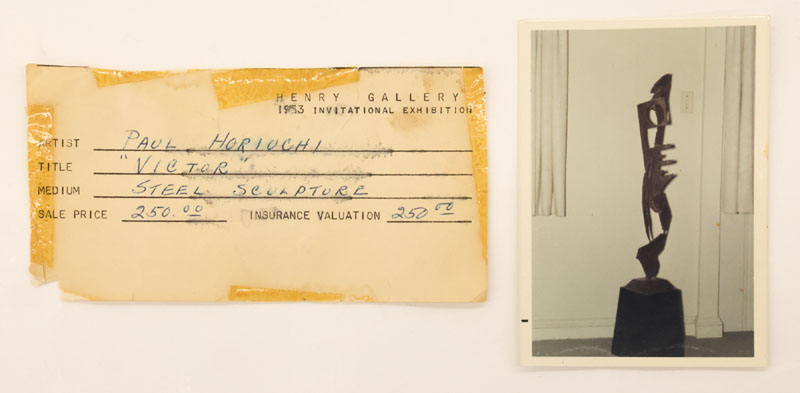 HENRY GALLERY
1953 INVITATIONAL EXHIBITION
ARTIST PAUL HORIUCHI
TITLE "VICTOR"
MEDIUM STEEL SCULPTURE
SALE PRICE 250.00 INSURANCE VALUATION 250 00